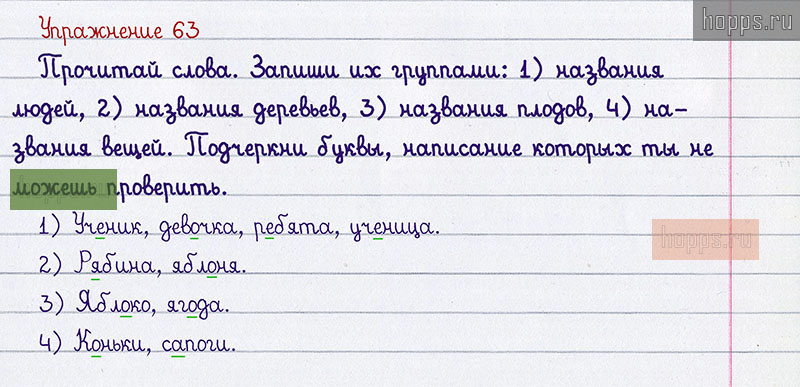 hopps.ru
Упражнение 63
Прочитай слова. Запиши их группами: 1) названия
людей, 2) названия деревьев, 3) названия плодов, 4) на-
звания вещей. Подчеркни буквы, написание которых ты не
можешь проверить.
1) Ученик, девочка, ребята, ученица.
hopps.ru
2) Рябина, яблоня.
3) Яблоко, ягода.
4) Коньки, сапоги.